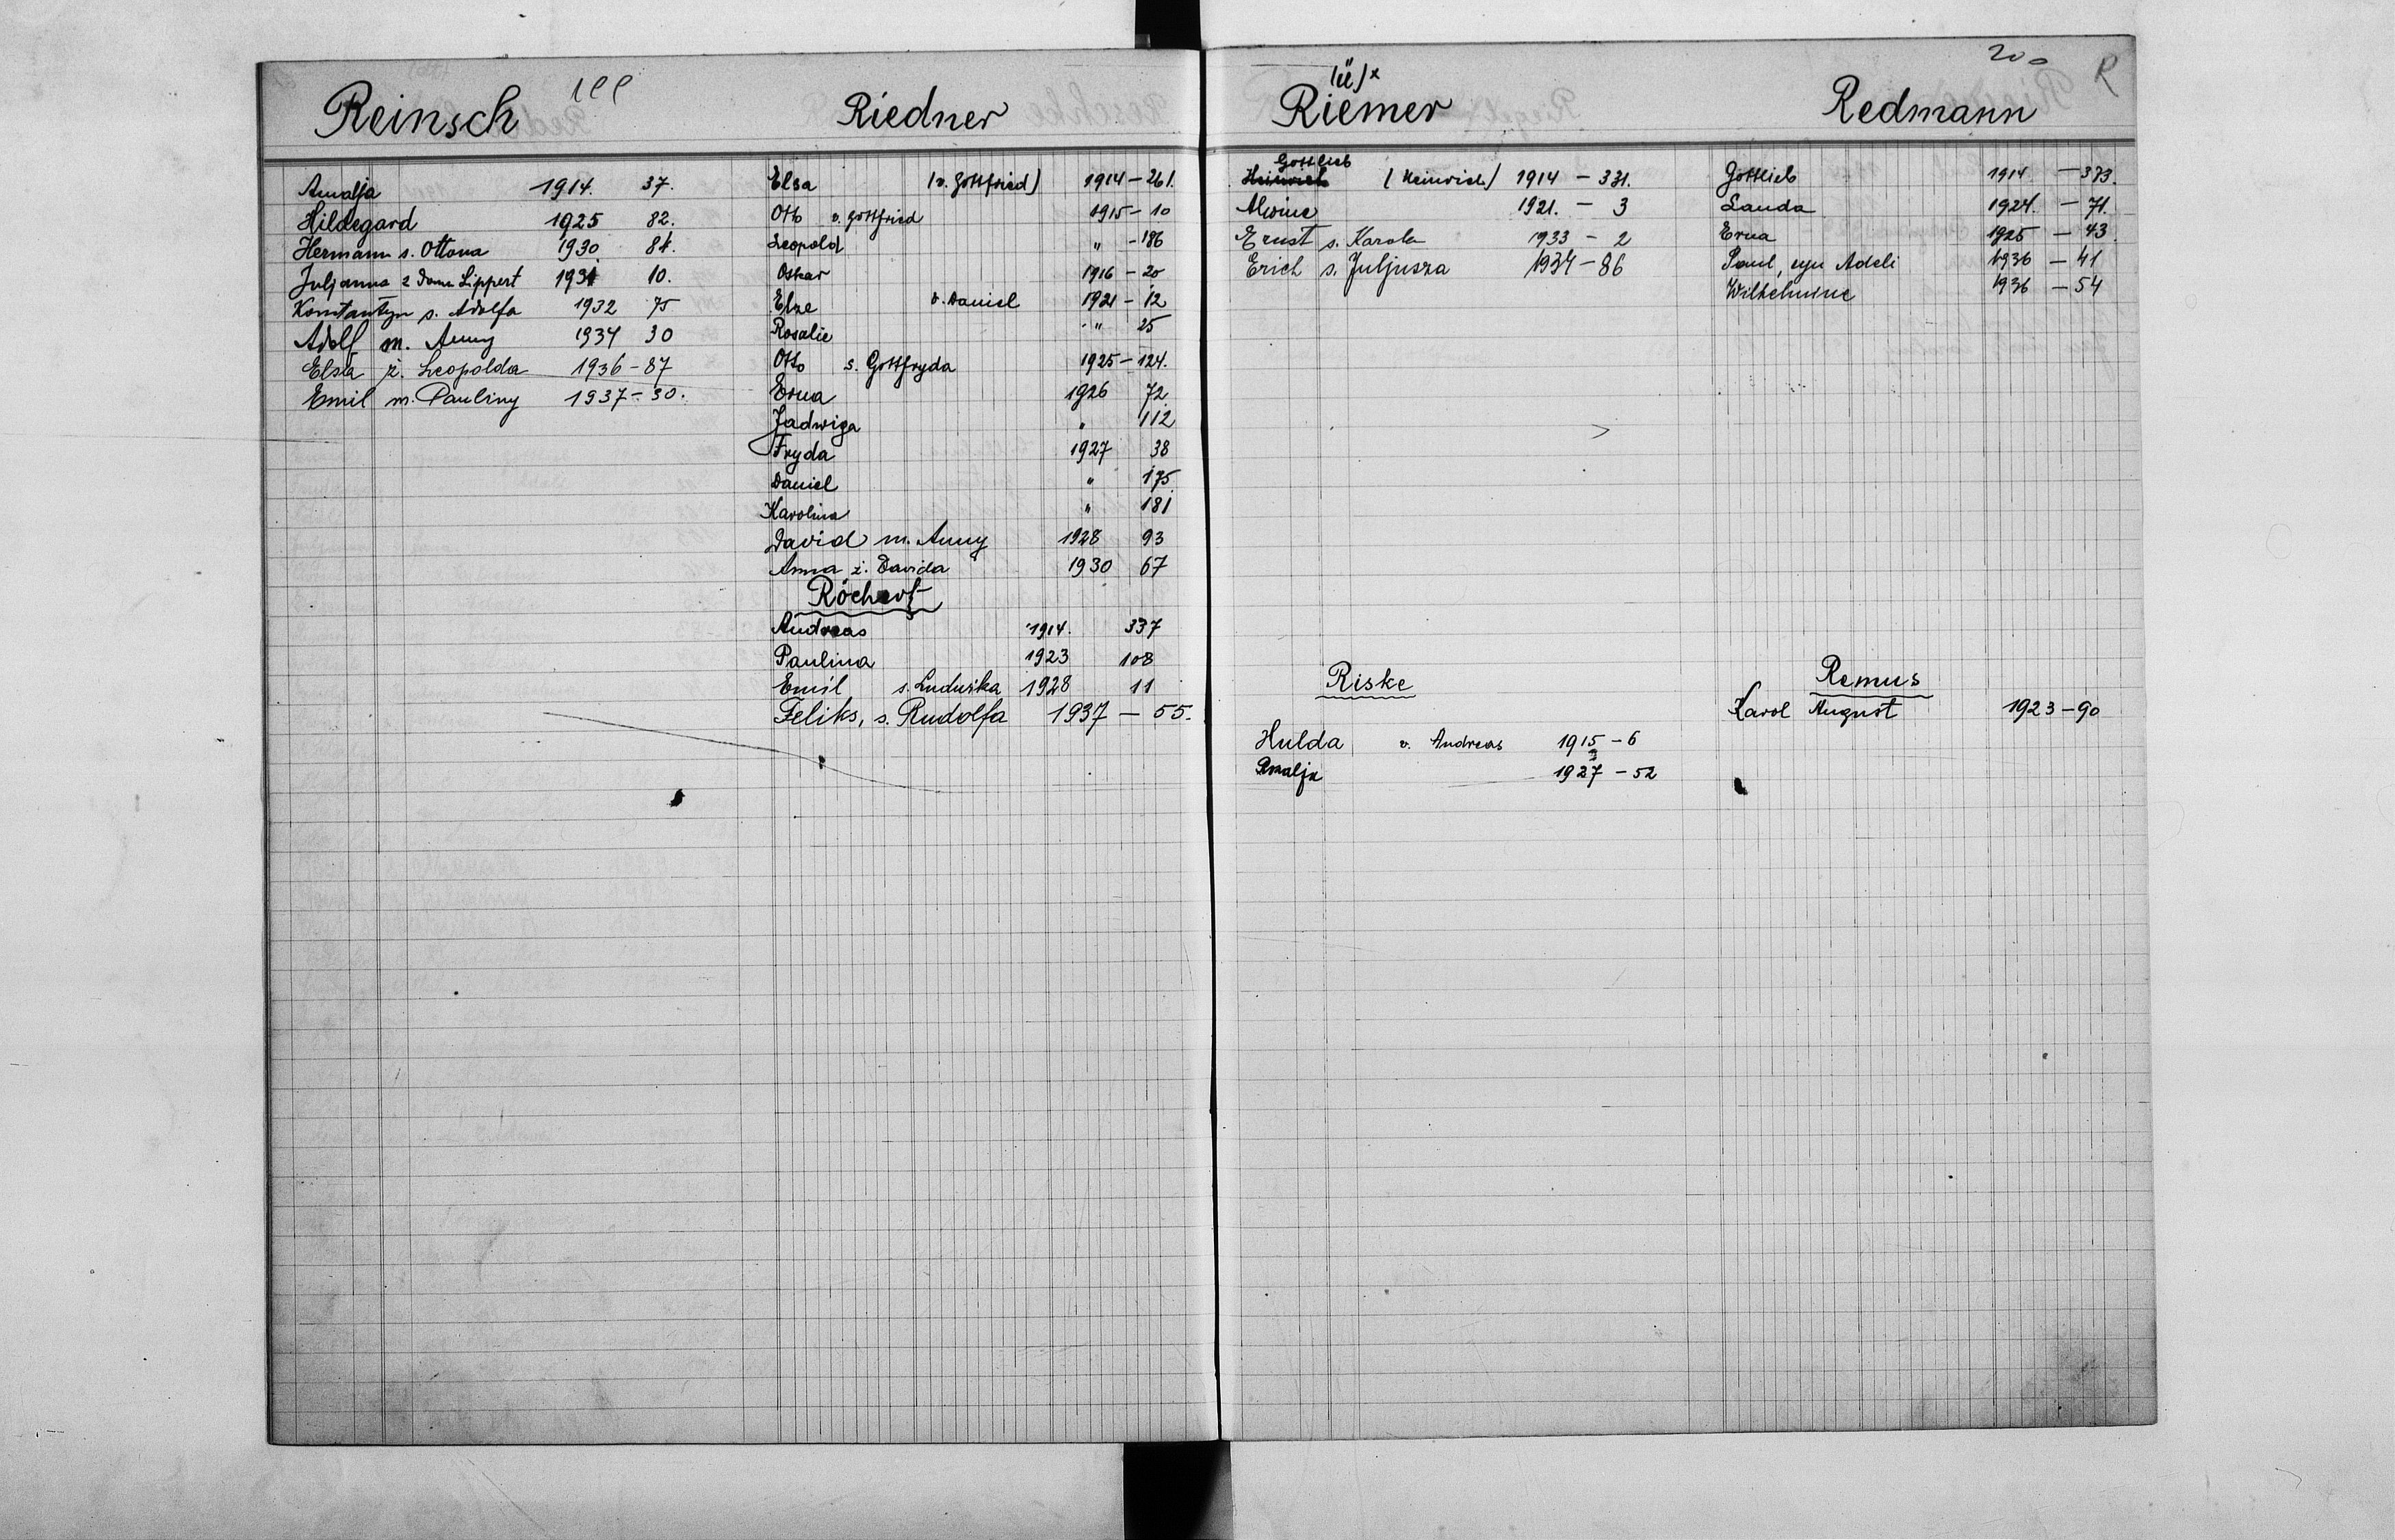 Reinsch 199
Amalja 1914. 37.
Hildegard 1925 82.
Hermann s. Ottona 1930. 84.
Juljanna z domu Lippert 1931 10.
Konstantyn s. Adolfa 1932 75
Adolf m. Anny 1934 30
Elsa ż. Leopolda 1936 - 87
Emil m. Pauliny 1937 - 30.
Riedner
Elsa (v. Gottfried) 1914 - 261.
Otto v. Gottfried 1915 - 10
Leopold " - 186
Oskar 1916 - 20
Else v. Daniel 1921 - 12
Rosalie " 25
Otto s. Gottfryda 1925 - 124.
Erna 1926 72
Jadwiga " 112
Fryda 1927 38
Daniel " 175
Karolina " 181
David m. Anny 1928 93
Anna ż. Davida 1930 67
Röchert
Andreas 1914. 337
Paulina 1923 108
Emil s. Ludwika 1928 11
Feliks, s. Rudolfa 1937 - 55.
200 R
(ü)x
Riemer
Gottlieb
Heinrich (Heinrich) 1914 - 331.
Alwine 1921. - 3
Ernst s. Karola 1933 - 2
Erich s. Juljusza 1934 - 86
Riske
Hulda v. Andreas 1915 - 6
Amalja 1927 - 52
Redmann
Gottlieb 1914 - 373.
Landa 1924. - 71.
Erna 1925 - 43.
Paul, syn Adeli 1936 - 41
Wilhelmine 1936 - 54
Remus
Karol August 1923 - 90